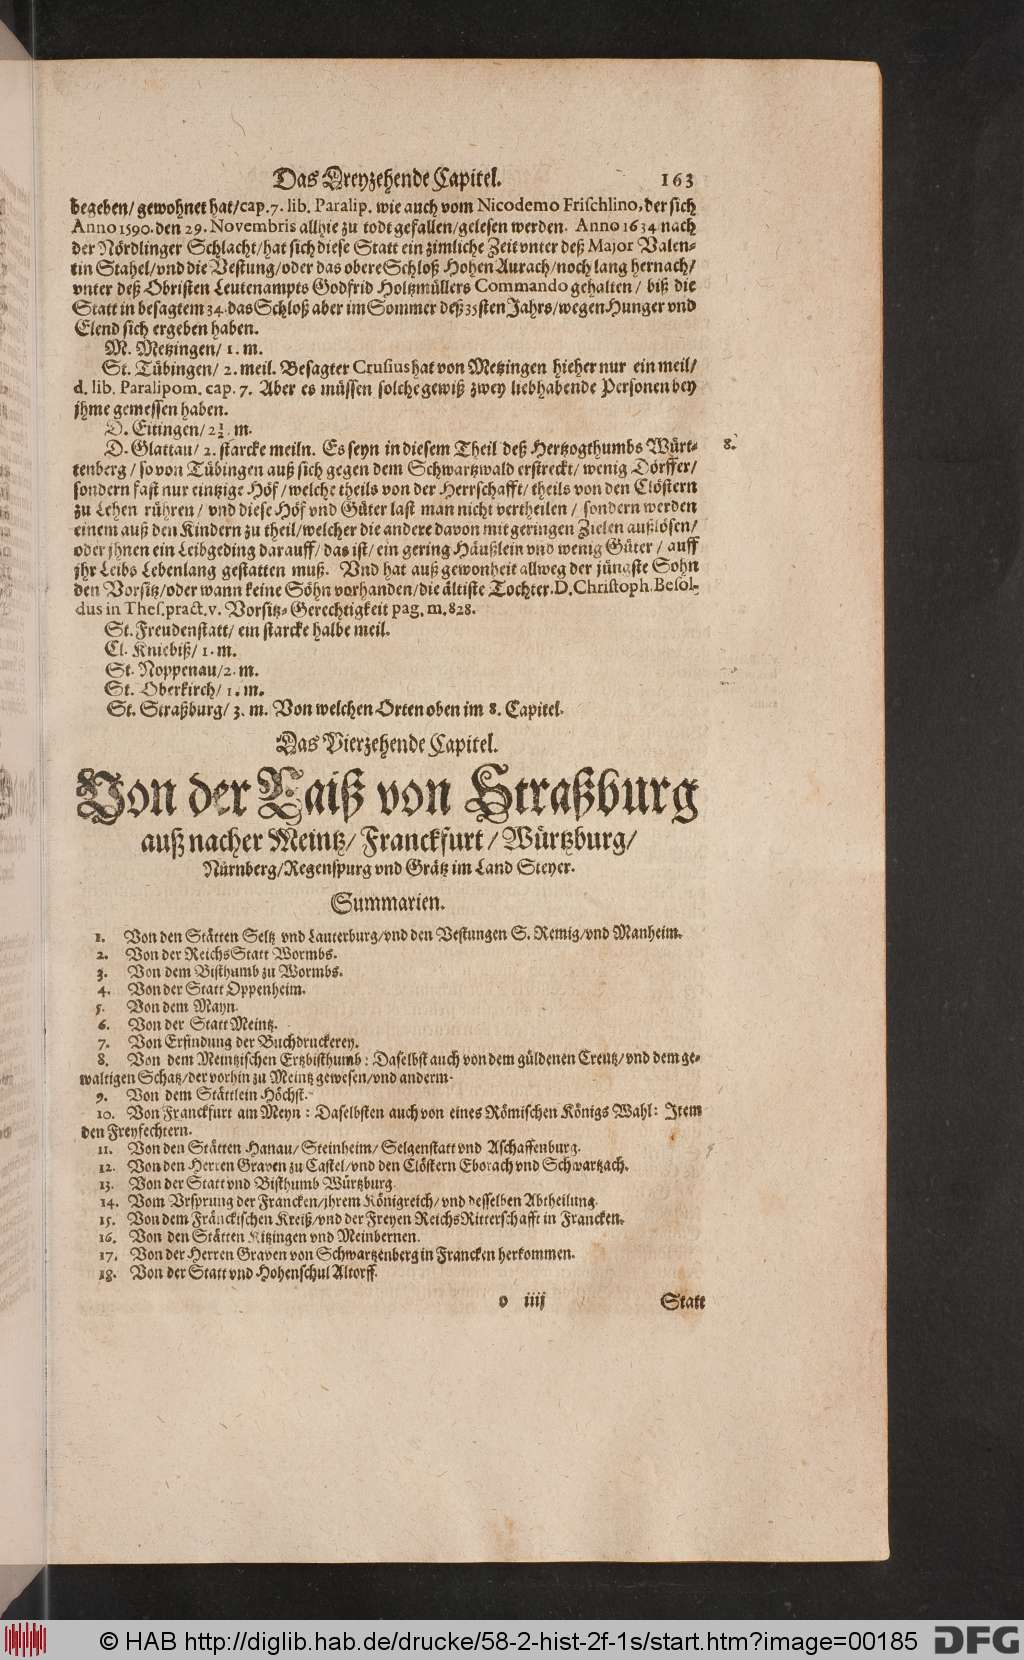 Das Dreyzehende Capitel. 163
begeben/ gewohnet hat/cap.7. lib. Paralip. wie auch vom Nicodemo Friſchlino, der ſich
Anno 1590. den 29. Novembris allhie zu todt gefallen/geleſen werden. Anno 1634 nach
der Nördlinger Schlacht/hat ſich dieſe Statt ein zimliche Zeit vnter deß Major Valen-
tin Stahel/vnd die Veſtung/oder das obere Schloß Hohen Aurach/noch lang hernach/
vnter deß Obriſten Leutenampts Godfrid Holtzmüllers Commando gehalten / biß die
Statt in beſagtem 34. das Schloß aber im Sommer deß 35ſten Jahrs/wegen Hunger vnd
Elend ſich ergeben haben.
M. Metzingen/ 1. m.
St. Tübingen/ 2. meil. Beſagter Cruſius hat von Metzingen hieher nur ein meil/
d. lib. Paralipom. cap. 7. Aber es müſſen ſolche gewiß zwey liebhabende Perſonen bey
jhme gemeſſen haben.
D. Eitingen/ 2½. m.
D. Glattau/ 2. ſtarcke meiln. Es ſeyn in dieſem Theil deß Hertzogthumbs Würt- 8.
tenberg / ſo von Tübingen auß ſich gegen dem Schwartzwald erſtreckt/ wenig Dörffer/
ſondern faſt nur eintzige Höf / welche theils von der Herrſchafft/ theils von den Clöſtern
zu Lehen rühren / vnd dieſe Höf vnd Güter laſt man nicht vertheilen / ſondern werden
einem auß den Kindern zu theil/welcher die andere davon mit geringen Zielen außlöſen/
oder jhnen ein Leibgeding darauff/ das iſt/ ein gering Häußlein vnd wenig Güter / auff
jhr Leibs Lebenlang geſtatten muß. Vnd hat auß gewonheit allweg der jüngſte Sohn
den Vorſitz/oder wann keine Söhn vorhanden/die ältiſte Tochter. D. Chriſtoph. Beſol-
dus in Theſ. pract. v. Vorſitz-Gerechtigkeit pag. m. 828.
St. Freudenſtatt/ ein ſtarcke halbe meil.
Cl. Kniebiß/ 1. m.
St. Noppenau/2. m.
St. Oberkirch/ 1. m.
St. Straßburg/ 3. m. Von welchen Orten oben im 8. Capitel.
Das Vierzehende Capitel.
Von der Raiß von Straßburg
auß nacher Meintz/ Franckfurt / Würtzburg/
Nürnberg/Regenſpurg vnd Grätz im Land Steyer.
Summarien.
1. Von den Stätten Seltz vnd Lauterburg/vnd den Veſtungen S. Remig/vnd Manheim.
2. Von der ReichsStatt Wormbs.
3. Von dem Biſthumb zu Wormbs.
4. Von der Statt Oppenheim.
5. Von dem Mayn.
6. Von der Statt Meintz.
7. Von Erfindung der Buchdruckerey.
8. Von dem Meintziſchen Ertzbiſthumb: Daſelbſt auch von dem güldenen Creutz/vnd dem ge-
waltigen Schatz/der vorhin zu Meintz geweſen/vnd anderm.
9. Von dem Stättlein Höchſt.
10. Von Franckfurt am Meyn: Daſelbſten auch von eines Römiſchen Königs Wahl: Item
den Freyfechtern.
11. Von den Stätten Hanau/ Steinheim/ Selgenſtatt vnd Aſchaffenburg.
12. Von den Herren Graven zu Caſtel/vnd den Clöſtern Eborach vnd Schwartzach.
13. Von der Statt vnd Biſthumb Würtzburg.
14. Vom Vrſprung der Francken/jhrem Königreich/ vnd deſſelben Abtheilung.
15. Von dem Fränckiſchen Kreiß/vnd der Freyen ReichsRitterſchafft in Francken.
16. Von den Stätten Kitzingen vnd Meinbernen.
17. Von der Herren Graven von Schwartzenberg in Francken herkommen.
18. Von der Statt vnd Hohenſchul Altorff.
o iiij Statt
© HAB http://diglib.hab.de/drucke/58-2-hist-2f-1s/start.htm?image=00185 DFG